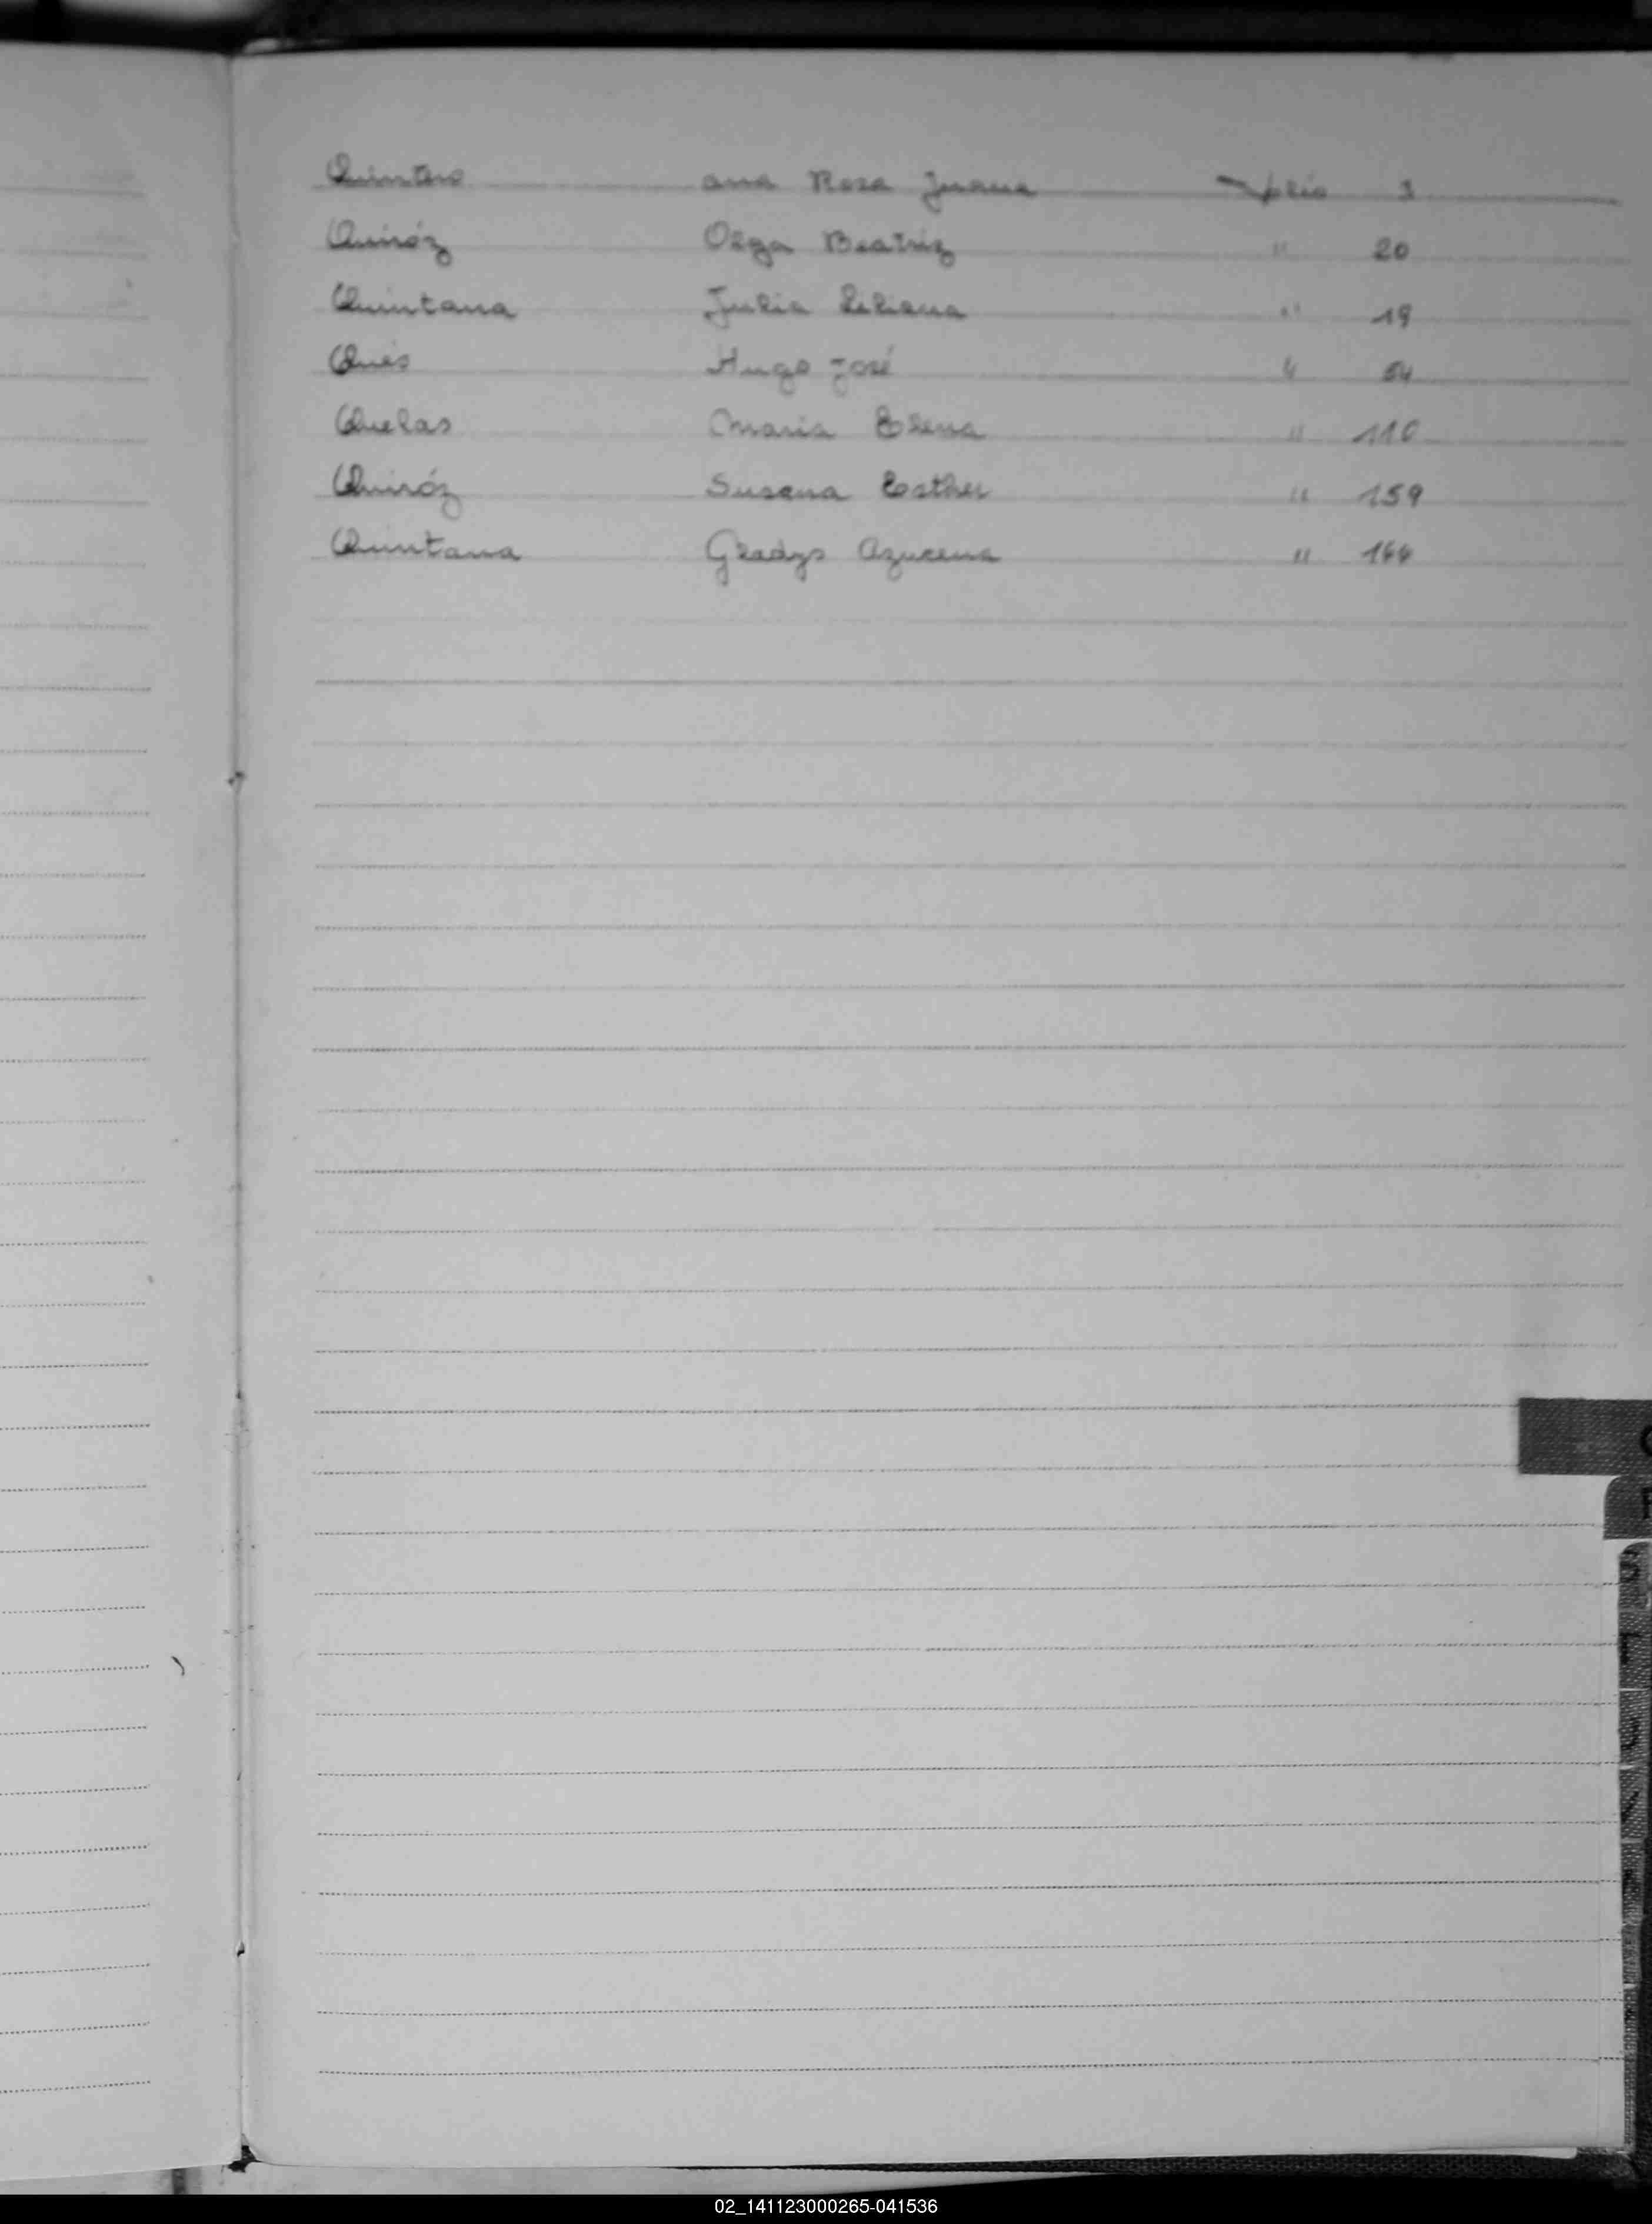 Quintero Ana Rosa Juana Folio 3
Quiróz Olga Beatriz " 20
Quintana Julia Liliana " 19
Ques Hugo José " 54
Quelas Maria Elena " 110
Quiróz Susana Esther " 159
Quintana Gladys Azucena " 166
02_141123000265-041536